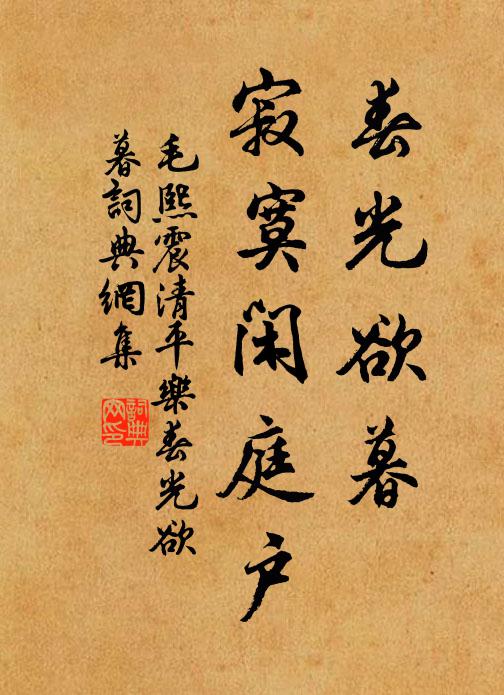 春光欲暮
寂寞閑庭户
毛熙震清平樂春光欲
暮詞典網集
詞典
网印